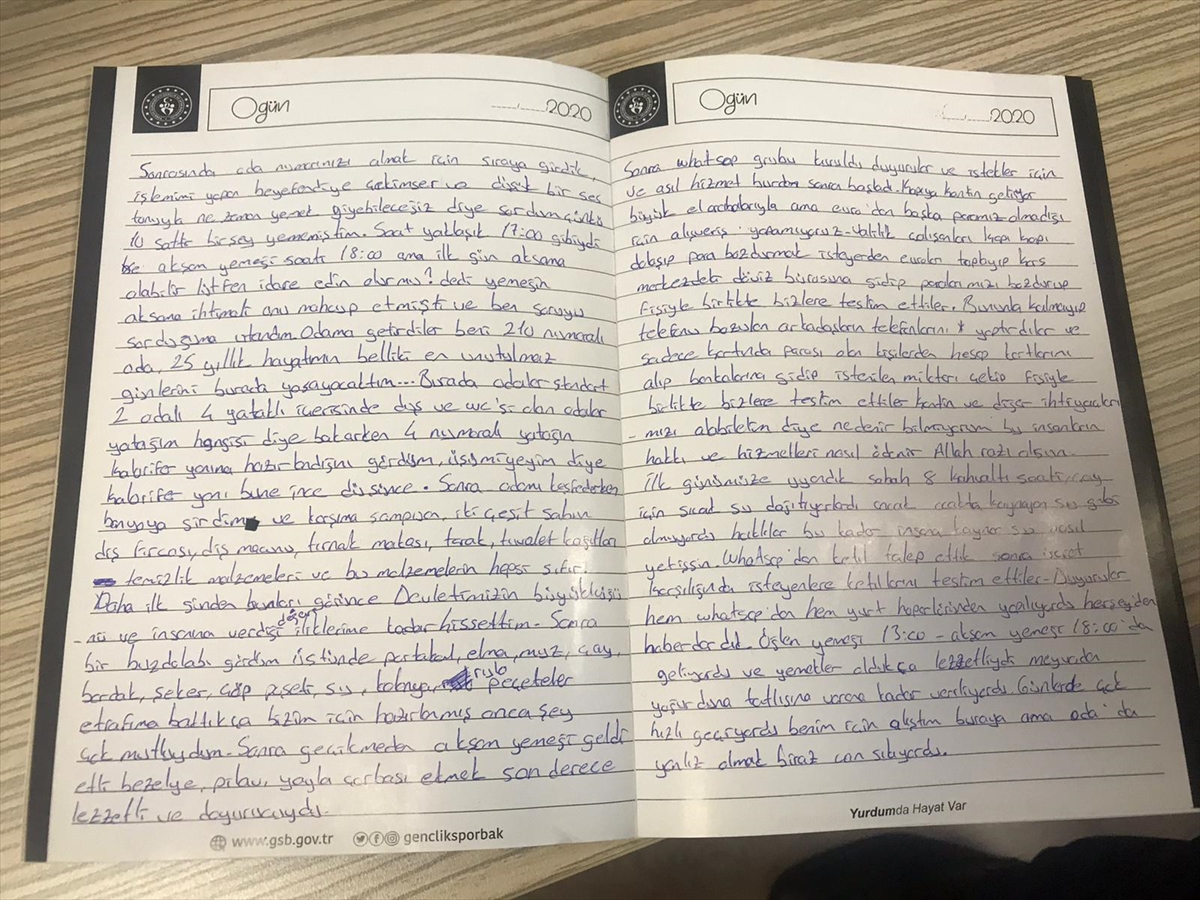 O gün
....../......2020
Sonrasında oda numaramızı almak için sıraya girdik,
işlemimi yapan beyefendiye çekimser ve düşük bir ses
tonuyla ne zaman yemek yiyebileceğiz diye sordum çünkü
10 saattir birşey yememiştim. Saat yaklaşık 17:00 gibiydi
akşam yemeği saati 18:00 ama ilk gün aksama
olabilir lütfen idare edin olur mu? dedi yemeğin
aksama ihtimali onu mahcup etmişti ve ben soruyu
sorduğuma utandım. Odama getirdiler beni 210 numaralı
oda, 25 yıllık hayatımın belliki en unutulmaz
günlerini burada yaşayacaktım... Burada odalar standart
2 odalı 4 yataklı içerisinde duş ve wc'si olan odalar
yatağım hangisi diye bakarken 4 numaralı yatağın
kalorifer yanına hazırlandığını gördüm, üşümiyeyim diye
kalorifer yanı bu ne ince düşünce. Sonra odamı keşfederken
banyoya girdim ve karşıma şampuan, iki çeşit sabun
diş fırçası, diş macunu, tırnak makası, tarak, tuvalet kağıtları
temizlik malzemeleri ve bu malzemelerin hepsi sıfır.
Daha ilk günden bunları görünce Devletimizin büyüklüğü
-nü ve insana verdiği değeri iliklerime kadar hissettim. Sonra
bir buzdolabı gördüm üstünde portakal, elma, muz, çay,
bardak, şeker, çöp poşeti, su, kolonya, rulo peçeteler
etrafıma baktıkça bizim için hazırlanmış onca şey
çok mutluydum. Sonra gecikmeden akşam yemeği geldi
etli bezelye, pilav, yayla çorbası ekmek son derece
lezzetli ve doyurucuydu.
www.gsb.gov.tr gencliksporbak
O gün
....../......2020
Sonra whatsap grubu kuruldu duyurular ve istekler için
ve asıl hizmet burdan sonra başladı. Kapıya kantin geliyor
büyük el arabalarıyla ama euro'dan başka paramız olmadığı
için alışveriş yapamıyoruz - Yetkili çalışanları kapı kapı
dolaşıp para bozdurmak isteyenden euroları toplayıp kars
merkezdeki döviz bürosuna gidip paralarımızı bozdurup
fişiyle birlikte bizlere teslim ettiler. Bununla kalmayıp
telefonu bozulan arkadaşların telefonlarını yaptırdılar ve
sadece kartında parası olan kişilerden hesap kartlarını
alıp bankalarına gidip istenilen miktarı çekip fişiyle
birlikte bizlere teslim ettiler kantin ve diğer ihtiyaçları
- mızı alabilelim diye nedenir bilmiyorum bu insanların
hakkı ve hizmetleri nasıl ödenir Allah razı olsun.
İlk günümüze uyandık sabah 8 kahvaltı saati, çay
için sıcak su dağıtıyorlardı ancak ocakta kaynayan su gibi
olmuyordu haklılar bu kadar insana kaynar su nasıl
yetişsin. Whatsap'dan ketıl talep ettik sonra
karşılığında isteyenlere ketıllarını teslim ettiler - Duyurular
hem whatsap'dan hem yurt hoparlöründen yapılıyordu herşeyden
haberdardık. Öğlen yemeği 13:00 - akşam yemeği 18:00'da
geliyordu ve yemekler oldukça lezzetliydi meyvadan
yoğurduna tatlısına varana kadar veriliyordu. Günlerde çok
hızlı geçiyordu benim için alıştım buraya ama oda'da
yanlız olmak biraz can sıkıyordu.
Yurdumda Hayat Var